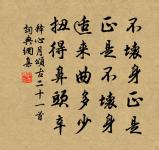 不壞身正是
正是不壞身
直来曲多少
扭得鼻頭辛
釋心月頌古二十一首
詞典網集